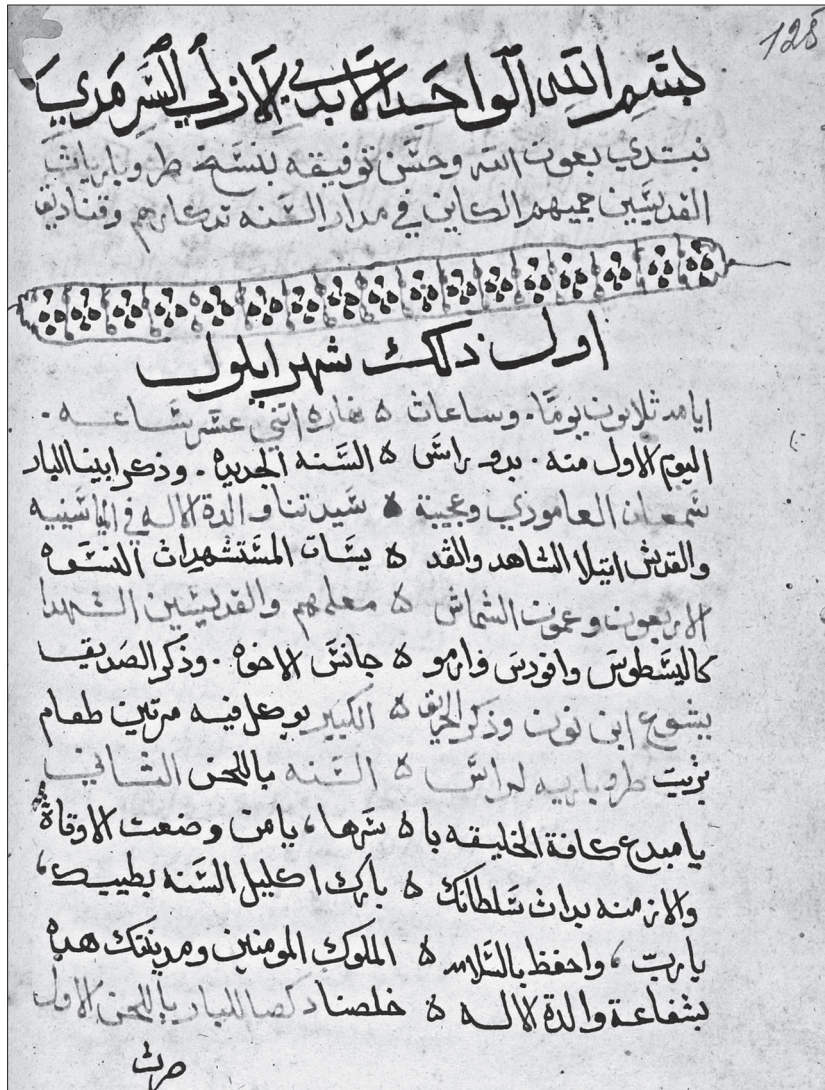 125
بسم الله الواحد الابدي الازلي السرمدي
نبتدي بعون الله وحسن توفيقه بنسخ طروباريات
القديسين جميهم الكاين في مدار السنه تدكارهم وقناديق
اول دلك شهر ايلول
ايامه ثلاثون يومًا. وساعات ه نهاره اتني عشر ساعه.
اليوم الاول منه. بدو راس ه السنه الجديده. وذكر ابينا البار
سمعان العامودي وعجيبة ه سيدتنا والدة الاله في
والقديس ايتلا الشاهد والقد ه يسات المستشهدات النسوه
الاربعون وعمون الشماس ه معلمهم والقديسين الشهدا
كاليسطوس وافودس وارمو ه جانس الاخوه. وذكر الصديق
يشوع ابن نون وذكر الحريق ه الكبير يوحل فيه مرتين طعام
بزيت طروباريه لراس ه السنه باللحن الثاني
يا مبدع كافة الخليقه با ه سرها، يا من وضعت الاوقاة
والازمنه بدات سلطانك ه بارك اكليل السنه بطيبك،
يا رب، واحفظ بالسلامه ه الملوك المومنين ومدينتك هده
بشفاعة والدة الاله ه خلصنا دكصا للبار باللحن الاول